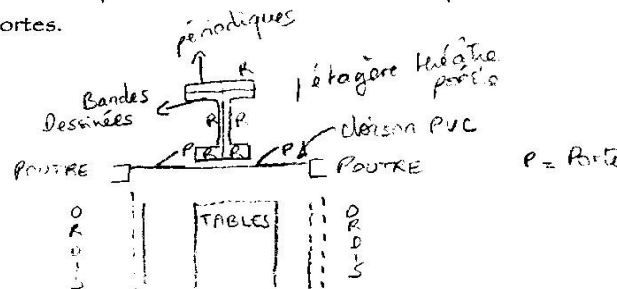 ortes.
périodiques
R
Bandes
Dessinées
étagère théâtre
poésie
R R
cloison PVC
R R
P P
POUTRE
POUTRE
P = Porte
TABLES
O
R
D
I
O
R
D
I
S